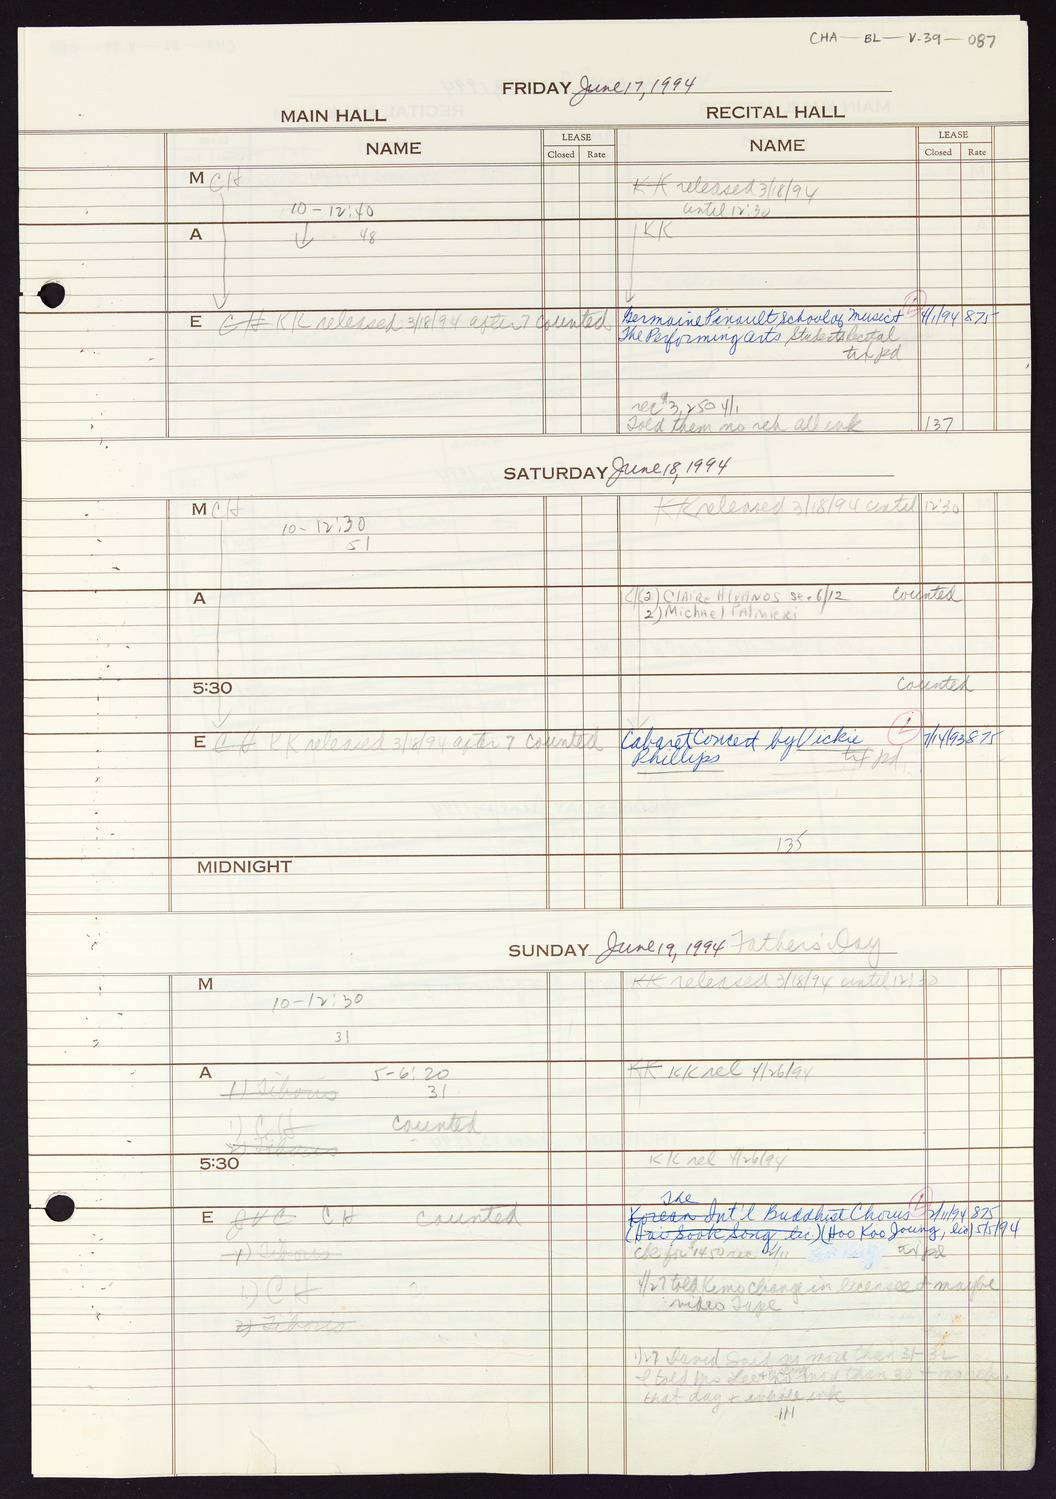 CHA — BL — V.39 — 087
FRIDAY June 17, 1994
MAIN HALL
RECITAL HALL
NAME
LEASE
Closed Rate
NAME
LEASE
Closed Rate
M CH
KK released 3/18/94
until 12:30
10 - 12:40
A
48
KK
E CH KK released 3/18/94 after 7 counted
Germaine Pinault School of Music &
The Performing Arts Students Recital
4/1/94 875
txt pd
rec $3,250 4/1
Told them no reh all wk
137
SATURDAY June 18, 1994
M CH
KK released 3/18/94 until 12:30
10 - 12:30
51
A
KK
2) CLAIRE see 6/12 counted
2) Michael Palmieri
5:30
counted
E CH KK released 3/18/94 after 7 counted
Cabaret Concert by Vickie
Phillips
L
7/14/93 875
txt pd
135
MIDNIGHT
SUNDAY June 19, 1994 Fathers' Day
M
KK released 3/18/94 until 12:30
10 - 12:30
31
A
5 - 6:20
31
KK KK rel 4/26/94
1) Tiboris
1) CH counted
2) Tiboris
5:30
KK rel 4/26/94
E CH counted
The
Korean Int'l Buddhist Chorus
L
2/11/94 875
(Hai Sook Song, lic) (Hoo Koo Joung, lic) 5/5/94
ck for $1450 rec 2/11
txt pd
1) Tiboris
1) CH
2) Tiboris
4/27 told Kemo change in licensee & maybe
video Tape
David said no more than 31-32
I told Ms Lee no more than 30 +
that day & whole wk
111